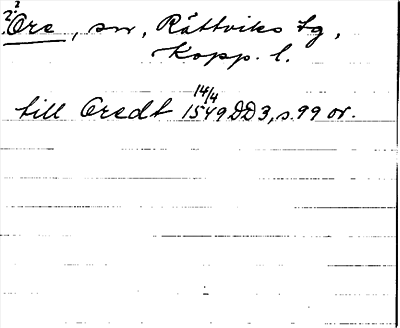 2? Ore, sn, Rättviks tg,
Kopp. l.
till Oredt 14/4 1549 DD3, s. 99 or.